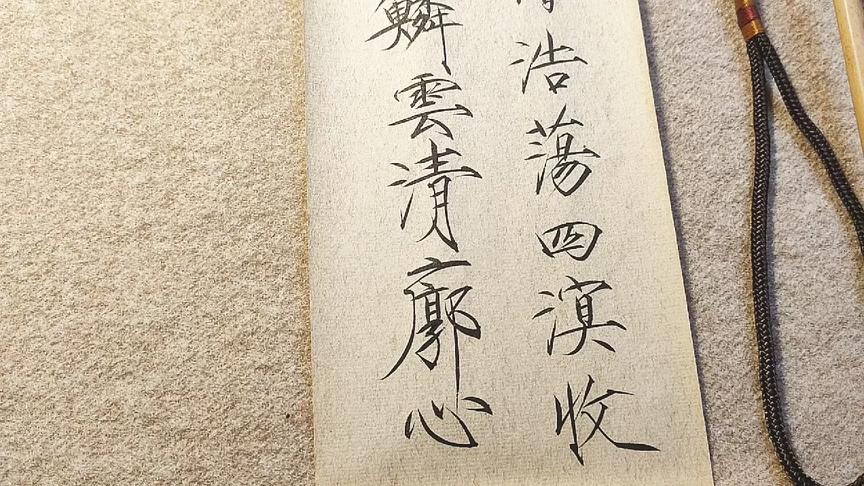 浩蕩四溟收
鱗雲清廓心